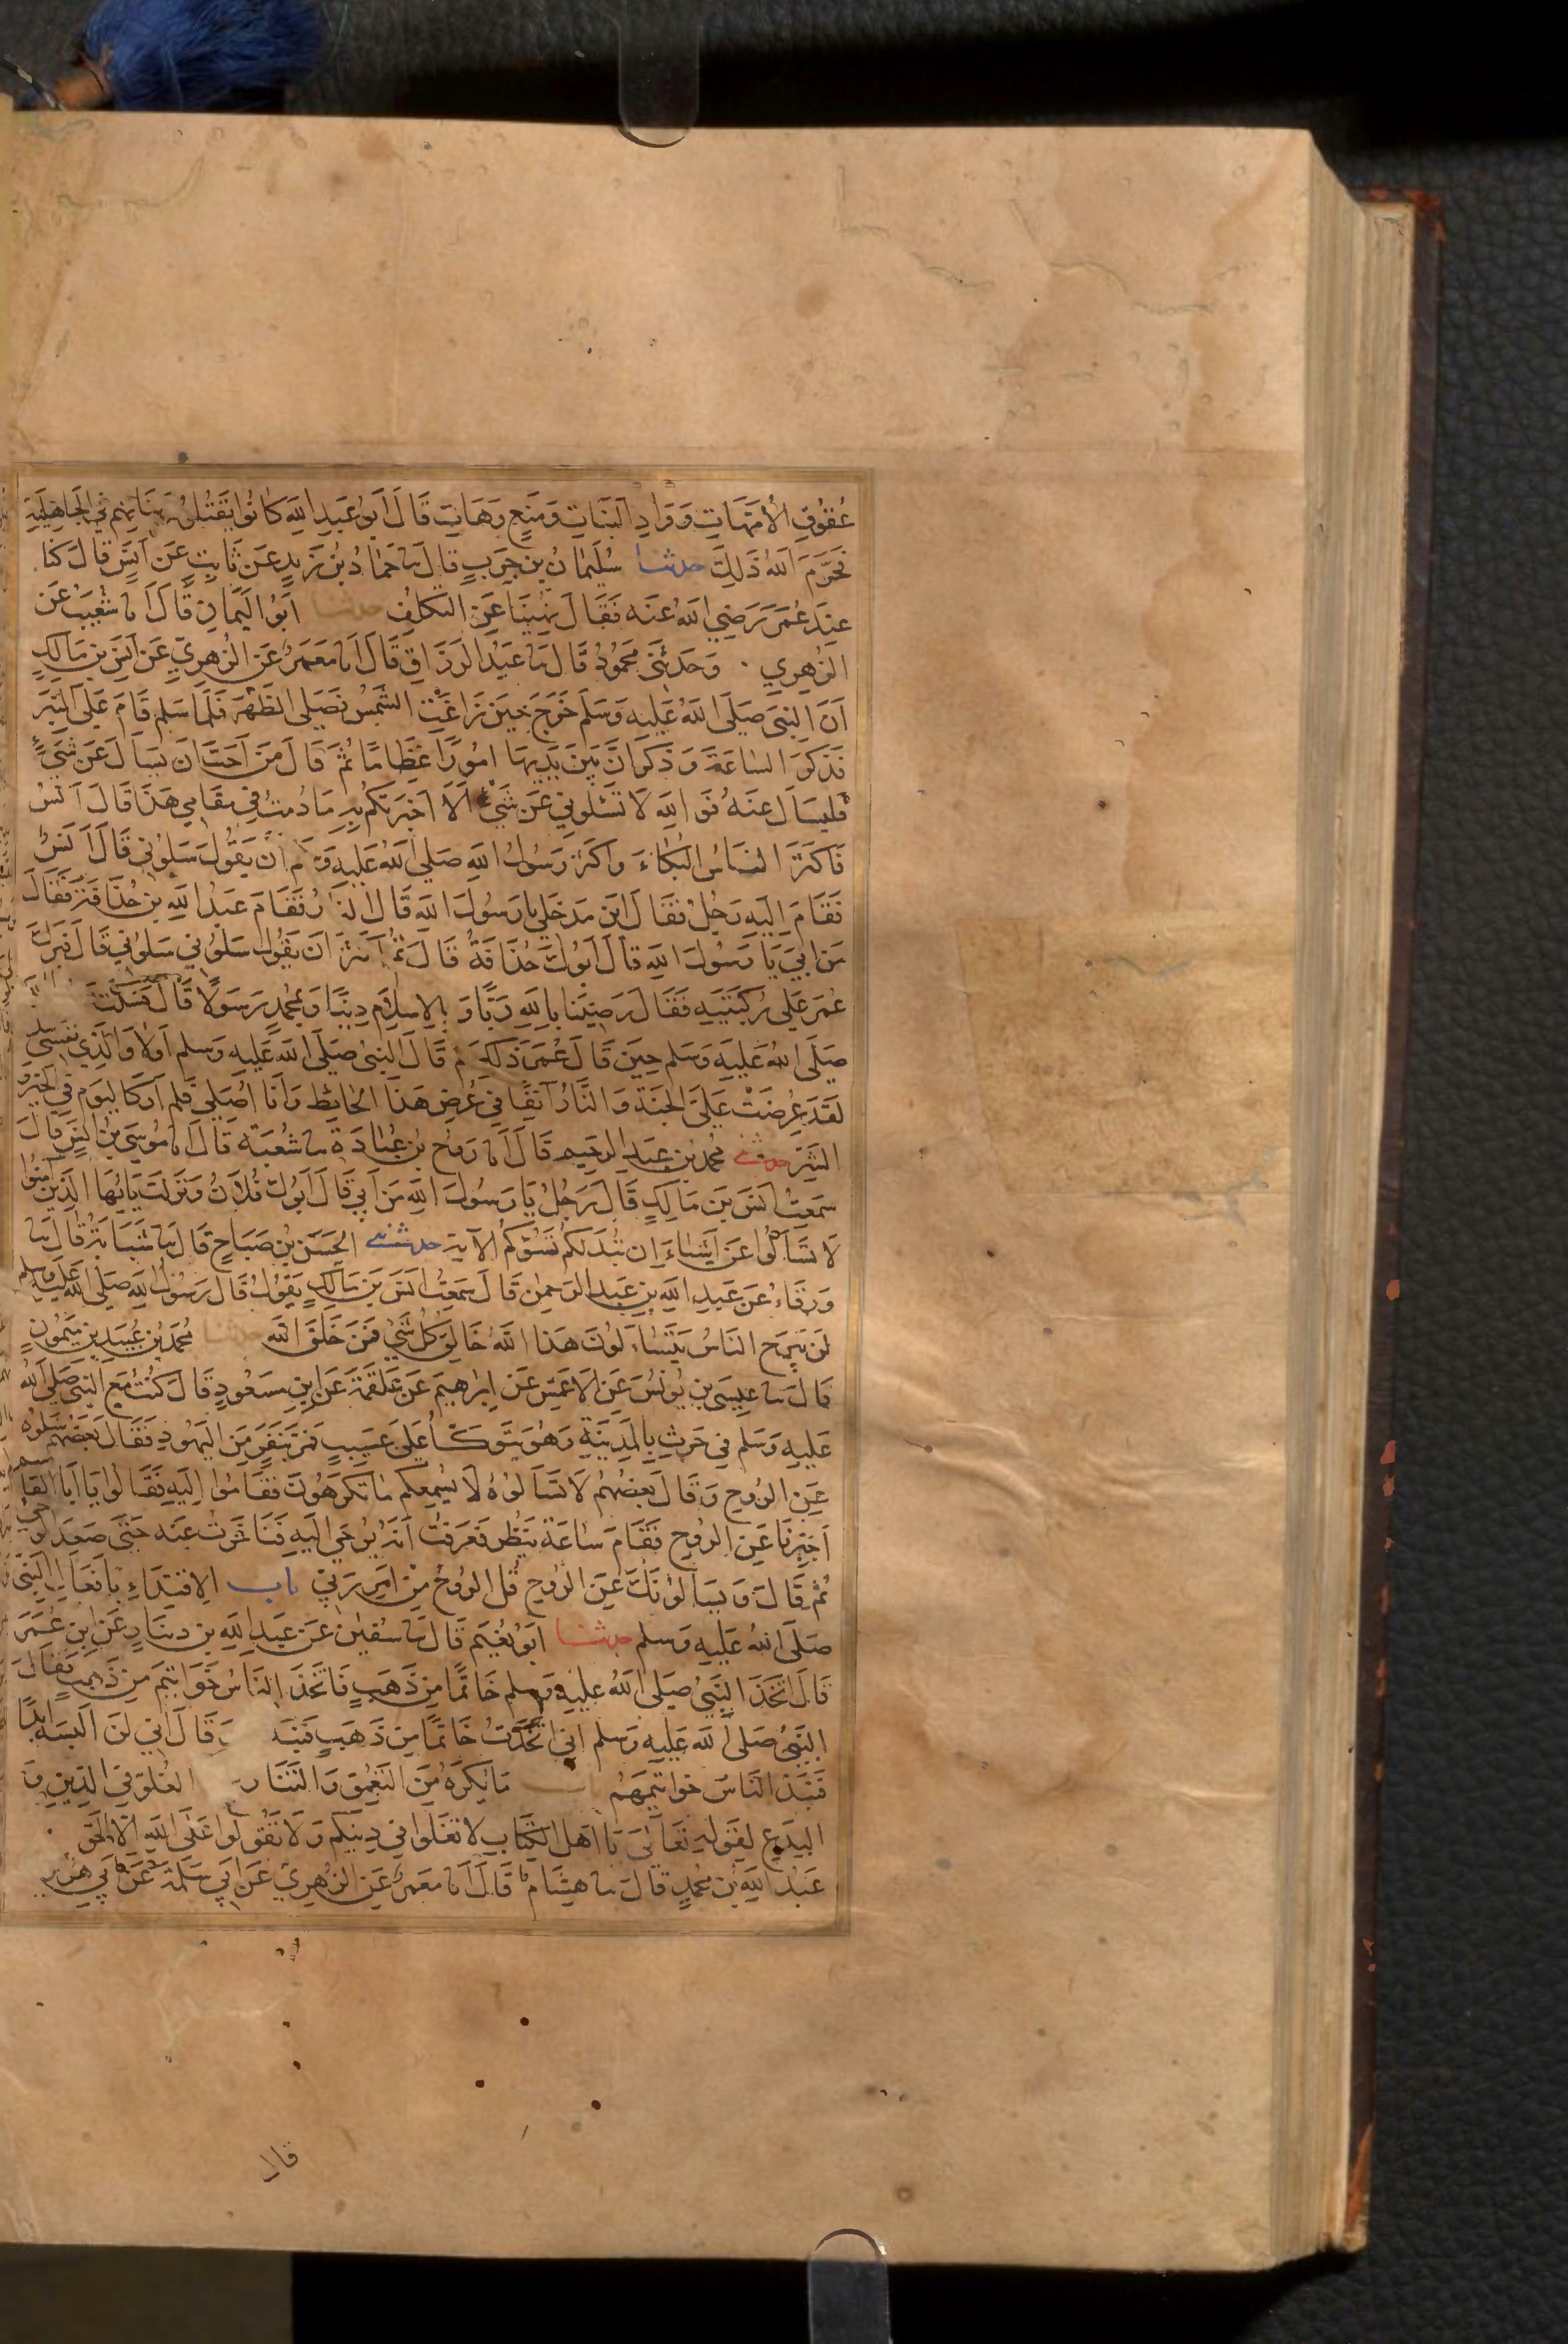 عُقُوقِ الْأُمَّهَاتِ وَوَادِ الْبَنَاتِ وَمَنْعٍ وَهَاتِ قَالَ أَبُو عَبْدِ اللهِ كَانُوا يَقْتُلُونَ بَنَاتِهِمْ فِي الْجَاهِلِيَّةِ
فَحَرَّمَ اللهُ ذَلِكَ حدثنا سُلَيْمَانُ بْنُ حَرْبٍ قَالَ نا حَمَّادُ بْنُ زَيْدٍ عَنْ ثَابِتٍ عَنْ أَنَسٍ قَالَ كُنَّا
عِنْدَ عُمَرَ رَضِيَ اللهُ عَنْهُ فَقَالَ نُهِينَا عَنِ التَّكَلُّفِ حدثنا أَبُو الْيَمَانِ قَالَ أَنَا شُعَيْبٌ عَنِ
الزُّهْرِيِّ وَحَدَّثَنِي مَحْمُودٌ قَالَ نا عَبْدُ الرَّزَّاقِ قَالَ أَنَا مَعْمَرٌ عَنِ الزُّهْرِيِّ عَنْ أَنَسِ بْنِ مَالِكٍ
أَنَّ النَّبِيَّ صَلَّى اللهُ عَلَيْهِ وَسَلَّمَ خَرَجَ حِينَ زَاغَتِ الشَّمْسُ فَصَلَّى الظُّهْرَ فَلَمَّا سَلَّمَ قَامَ عَلَى الْمِنْبَرِ
فَذَكَرَ السَّاعَةَ وَذَكَرَ أَنَّ بَيْنَ يَدَيْهَا أُمُورًا عِظَامًا ثُمَّ قَالَ مَنْ أَحَبَّ أَنْ يَسْأَلَ عَنْ شَيْءٍ
فَلْيَسْأَلْ عَنْهُ فَوَاللهِ لَا تَسْئَلُونِي عَنْ شَيْءٍ إِلَّا أَخْبَرْتُكُمْ بِهِ مَا دُمْتُ فِي مَقَامِي هَذَا قَالَ أَنَسٌ
فَأَكْثَرَ النَّاسُ الْبُكَاءَ وَأَكْثَرَ رَسُولُ اللهِ صَلَّى اللهُ عَلَيْهِ وَسَلَّمَ أَنْ يَقُولَ سَلُونِي قَالَ أَنَسٌ
فَقَامَ إِلَيْهِ رَجُلٌ فَقَالَ أَيْنَ مَدْخَلِي يَا رَسُولَ اللهِ قَالَ النَّارُ فَقَامَ عَبْدُ اللهِ بْنُ حُذَافَةَ فَقَالَ
مَنْ أَبِي يَا رَسُولَ اللهِ قَالَ أَبُوكَ حُذَافَةُ قَالَ ثُمَّ أَكْثَرَ أَنْ يَقُولَ سَلُونِي سَلُونِي قَالَ فَبَرَكَ
عُمَرُ عَلَى رُكْبَتَيْهِ فَقَالَ رَضِينَا بِاللهِ رَبًّا وَبِالْإِسْلَامِ دِينًا وَبِمُحَمَّدٍ رَسُولًا قَالَ فَسَكَتَ
صَلَّى اللهُ عَلَيْهِ وَسَلَّمَ حِينَ قَالَ عُمَرُ ذَلِكَ ثُمَّ قَالَ النَّبِيُّ صَلَّى اللهُ عَلَيْهِ وَسَلَّمَ أَوْلَى وَالَّذِي نَفْسِي
لَقَدْ عُرِضَتْ عَلَيَّ الْجَنَّةُ وَالنَّارُ آنِفًا فِي عُرْضِ هَذَا الْحَائِطِ وَأَنَا أُصَلِّي فَلَمْ أَرَ كَالْيَوْمِ فِي الْخَيْرِ وَ
الشَّرِّ حدثني مُحَمَّدُ بْنُ عَبْدِ الرَّحِيمِ قَالَ أَنَا رَوْحُ بْنُ عُبَادَةَ نا شُعْبَةُ قَالَ نا مُوسَى بْنُ أَنَسٍ قَالَ
سَمِعْتُ أَنَسَ بْنَ مَالِكٍ قَالَ رَجُلٌ يَا رَسُولَ اللهِ مَنْ أَبِي قَالَ أَبُوكَ فُلَانٌ وَنَزَلَتْ يَا أَيُّهَا الَّذِينَ آمَنُوا
لَا تَسْأَلُوا عَنْ أَشْيَاءَ إِنْ تُبْدَ لَكُمْ تَسُؤْكُمْ الْآيَةَ حدثني الْحَسَنُ بْنُ صَبَّاحٍ قَالَ نا شَبَابَةُ قَالَ نا
وَرْقَاءُ عَنْ عَبْدِ اللهِ بْنِ عَبْدِ الرَّحْمَنِ قَالَ سَمِعْتُ أَنَسَ بْنَ مَالِكٍ يَقُولُ قَالَ رَسُولُ اللهِ صَلَّى اللهُ عَلَيْهِ وَسَلَّمَ
لَنْ يَبْرَحَ النَّاسُ يَتَسَاءَلُونَ هَذَا اللهُ خَالِقُ كُلِّ شَيْءٍ فَمَنْ خَلَقَ اللهَ حدثنا مُحَمَّدُ بْنُ عُبَيْدِ بْنِ مَيْمُونٍ
قَالَ نا عِيسَى بْنُ يُونُسَ عَنِ الْأَعْمَشِ عَنْ إِبْرَاهِيمَ عَنْ عَلْقَمَةَ عَنِ ابْنِ مَسْعُودٍ قَالَ كُنْتُ مَعَ النَّبِيِّ صَلَّى اللهُ
عَلَيْهِ وَسَلَّمَ فِي حَرْثٍ بِالْمَدِينَةِ وَهُوَ يَتَوَكَّأُ عَلَى عَسِيبٍ فَمَرَّ بِنَفَرٍ مِنَ الْيَهُودِ فَقَالَ بَعْضُهُمْ سَلُوهُ
عَنِ الرُّوحِ وَقَالَ بَعْضُهُمْ لَا تَسْأَلُوهُ لَا يُسْمِعْكُمْ مَا تَكْرَهُونَ فَقَامُوا إِلَيْهِ فَقَالُوا يَا أَبَا الْقَاسِمِ
أَخْبِرْنَا عَنِ الرُّوحِ فَقَامَ سَاعَةً يَنْظُرُ فَعَرَفْتُ أَنَّهُ يُوحَى إِلَيْهِ فَتَأَخَّرْتُ عَنْهُ حَتَّى صَعِدَ الْوَحْيُ
ثُمَّ قَالَ وَيَسْأَلُونَكَ عَنِ الرُّوحِ قُلِ الرُّوحُ مِنْ أَمْرِ رَبِّي باب الْاِقْتِدَاءِ بِأَفْعَالِ النَّبِيِّ
صَلَّى اللهُ عَلَيْهِ وَسَلَّمَ حدثنا أَبُو نُعَيْمٍ قَالَ نا سُفْيَنُ عَنْ عَبْدِ اللهِ بْنِ دِينَارٍ عَنِ ابْنِ عُمَرَ
قَالَ اتَّخَذَ النَّبِيُّ صَلَّى اللهُ عَلَيْهِ وَسَلَّمَ خَاتَمًا مِنْ ذَهَبٍ فَاتَّخَذَ النَّاسُ خَوَاتِيمَ مِنْ ذَهَبٍ فَقَالَ
النَّبِيُّ صَلَّى اللهُ عَلَيْهِ وَسَلَّمَ إِنِّي اتَّخَذْتُ خَاتَمًا مِنْ ذَهَبٍ فَنَبَذَهُ وَقَالَ إِنِّي لَنْ أَلْبَسَهُ أَبَدًا
فَنَبَذَ النَّاسُ خَوَاتِيمَهُمْ باب مَا يُكْرَهُ مِنَ التَّعَمُّقِ وَالتَّنَازُعِ الْغُلُوِّ فِي الدِّينِ وَ
الْبِدَعِ لِقَوْلِهِ تَعَالَى يَا أَهْلَ الْكِتَابِ لَا تَغْلُوا فِي دِينِكُمْ وَلَا تَقُولُوا عَلَى اللهِ إِلَّا الْحَقَّ
عَبْدُ اللهِ بْنُ مُحَمَّدٍ قَالَ نا هِشَامٌ قَالَ أَنَا مَعْمَرٌ عَنِ الزُّهْرِيِّ عَنْ أَبِي سَلَمَةَ عَنْ أَبِي هُرَيْرَةَ
قال